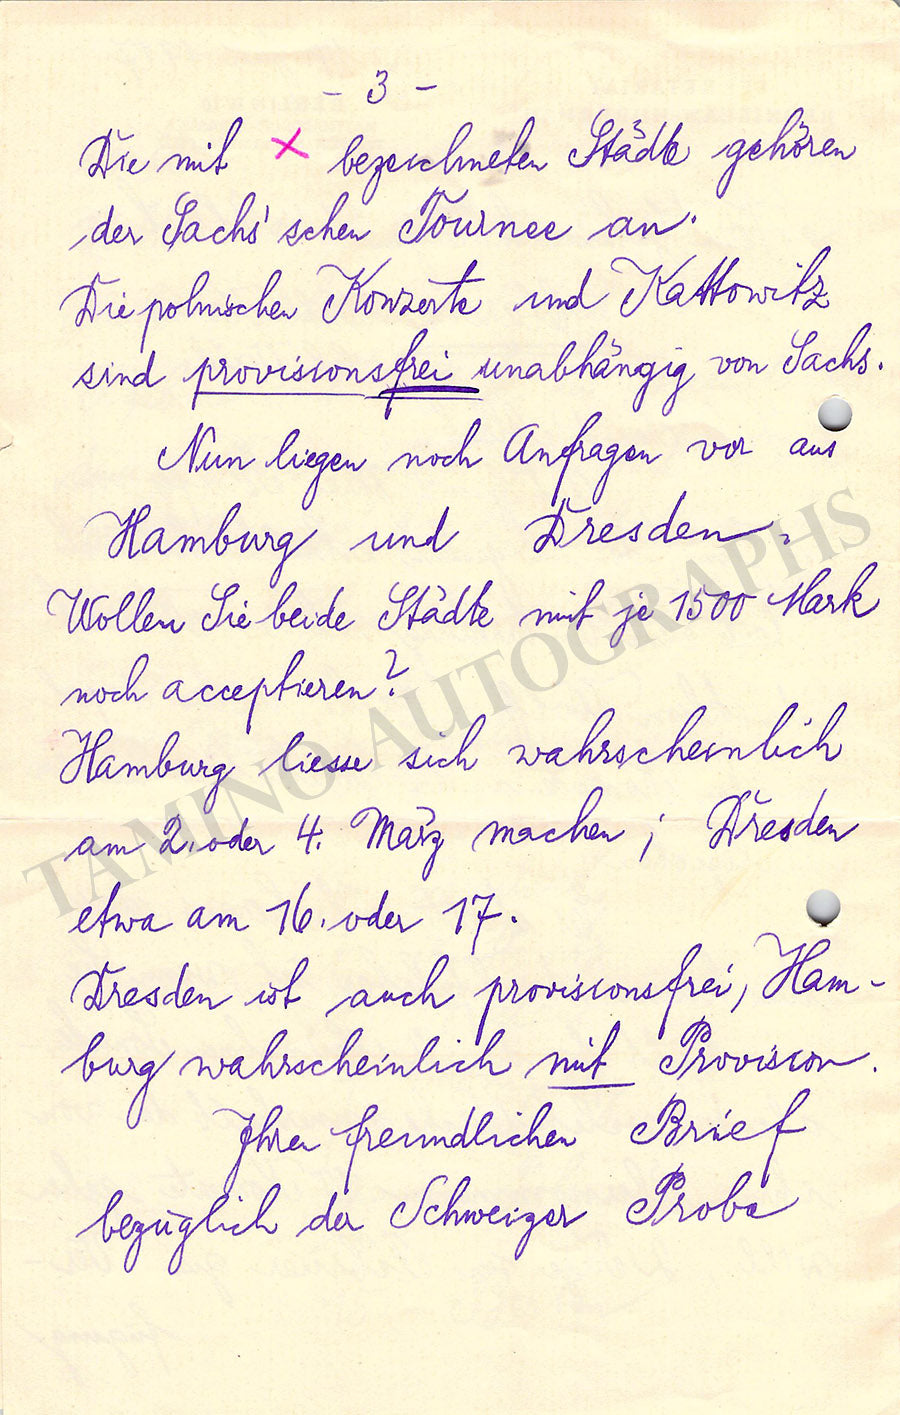 - 3 -
Die mit × bezeichneten Städte gehören
der Sachs'schen Tournee an.
Die polnischen Konzerte und Kattowitz
sind provisionsfrei unabhängig von Sachs.
Nun liegen noch Anfragen vor aus
Hamburg und Dresden.
Wollen Sie beide Städte mit je 1500 Mark
noch acceptieren?
Hamburg liesse sich wahrscheinlich
am 2. oder 4. März machen; Dresden
etwa am 16. oder 17.
Dresden ist auch provisionsfrei, Ham-
burg wahrscheinlich mit Provision.
Ihren freundlichen Brief
bezüglich der Schweizer Probe
TAMINO AUTOGRAPHS